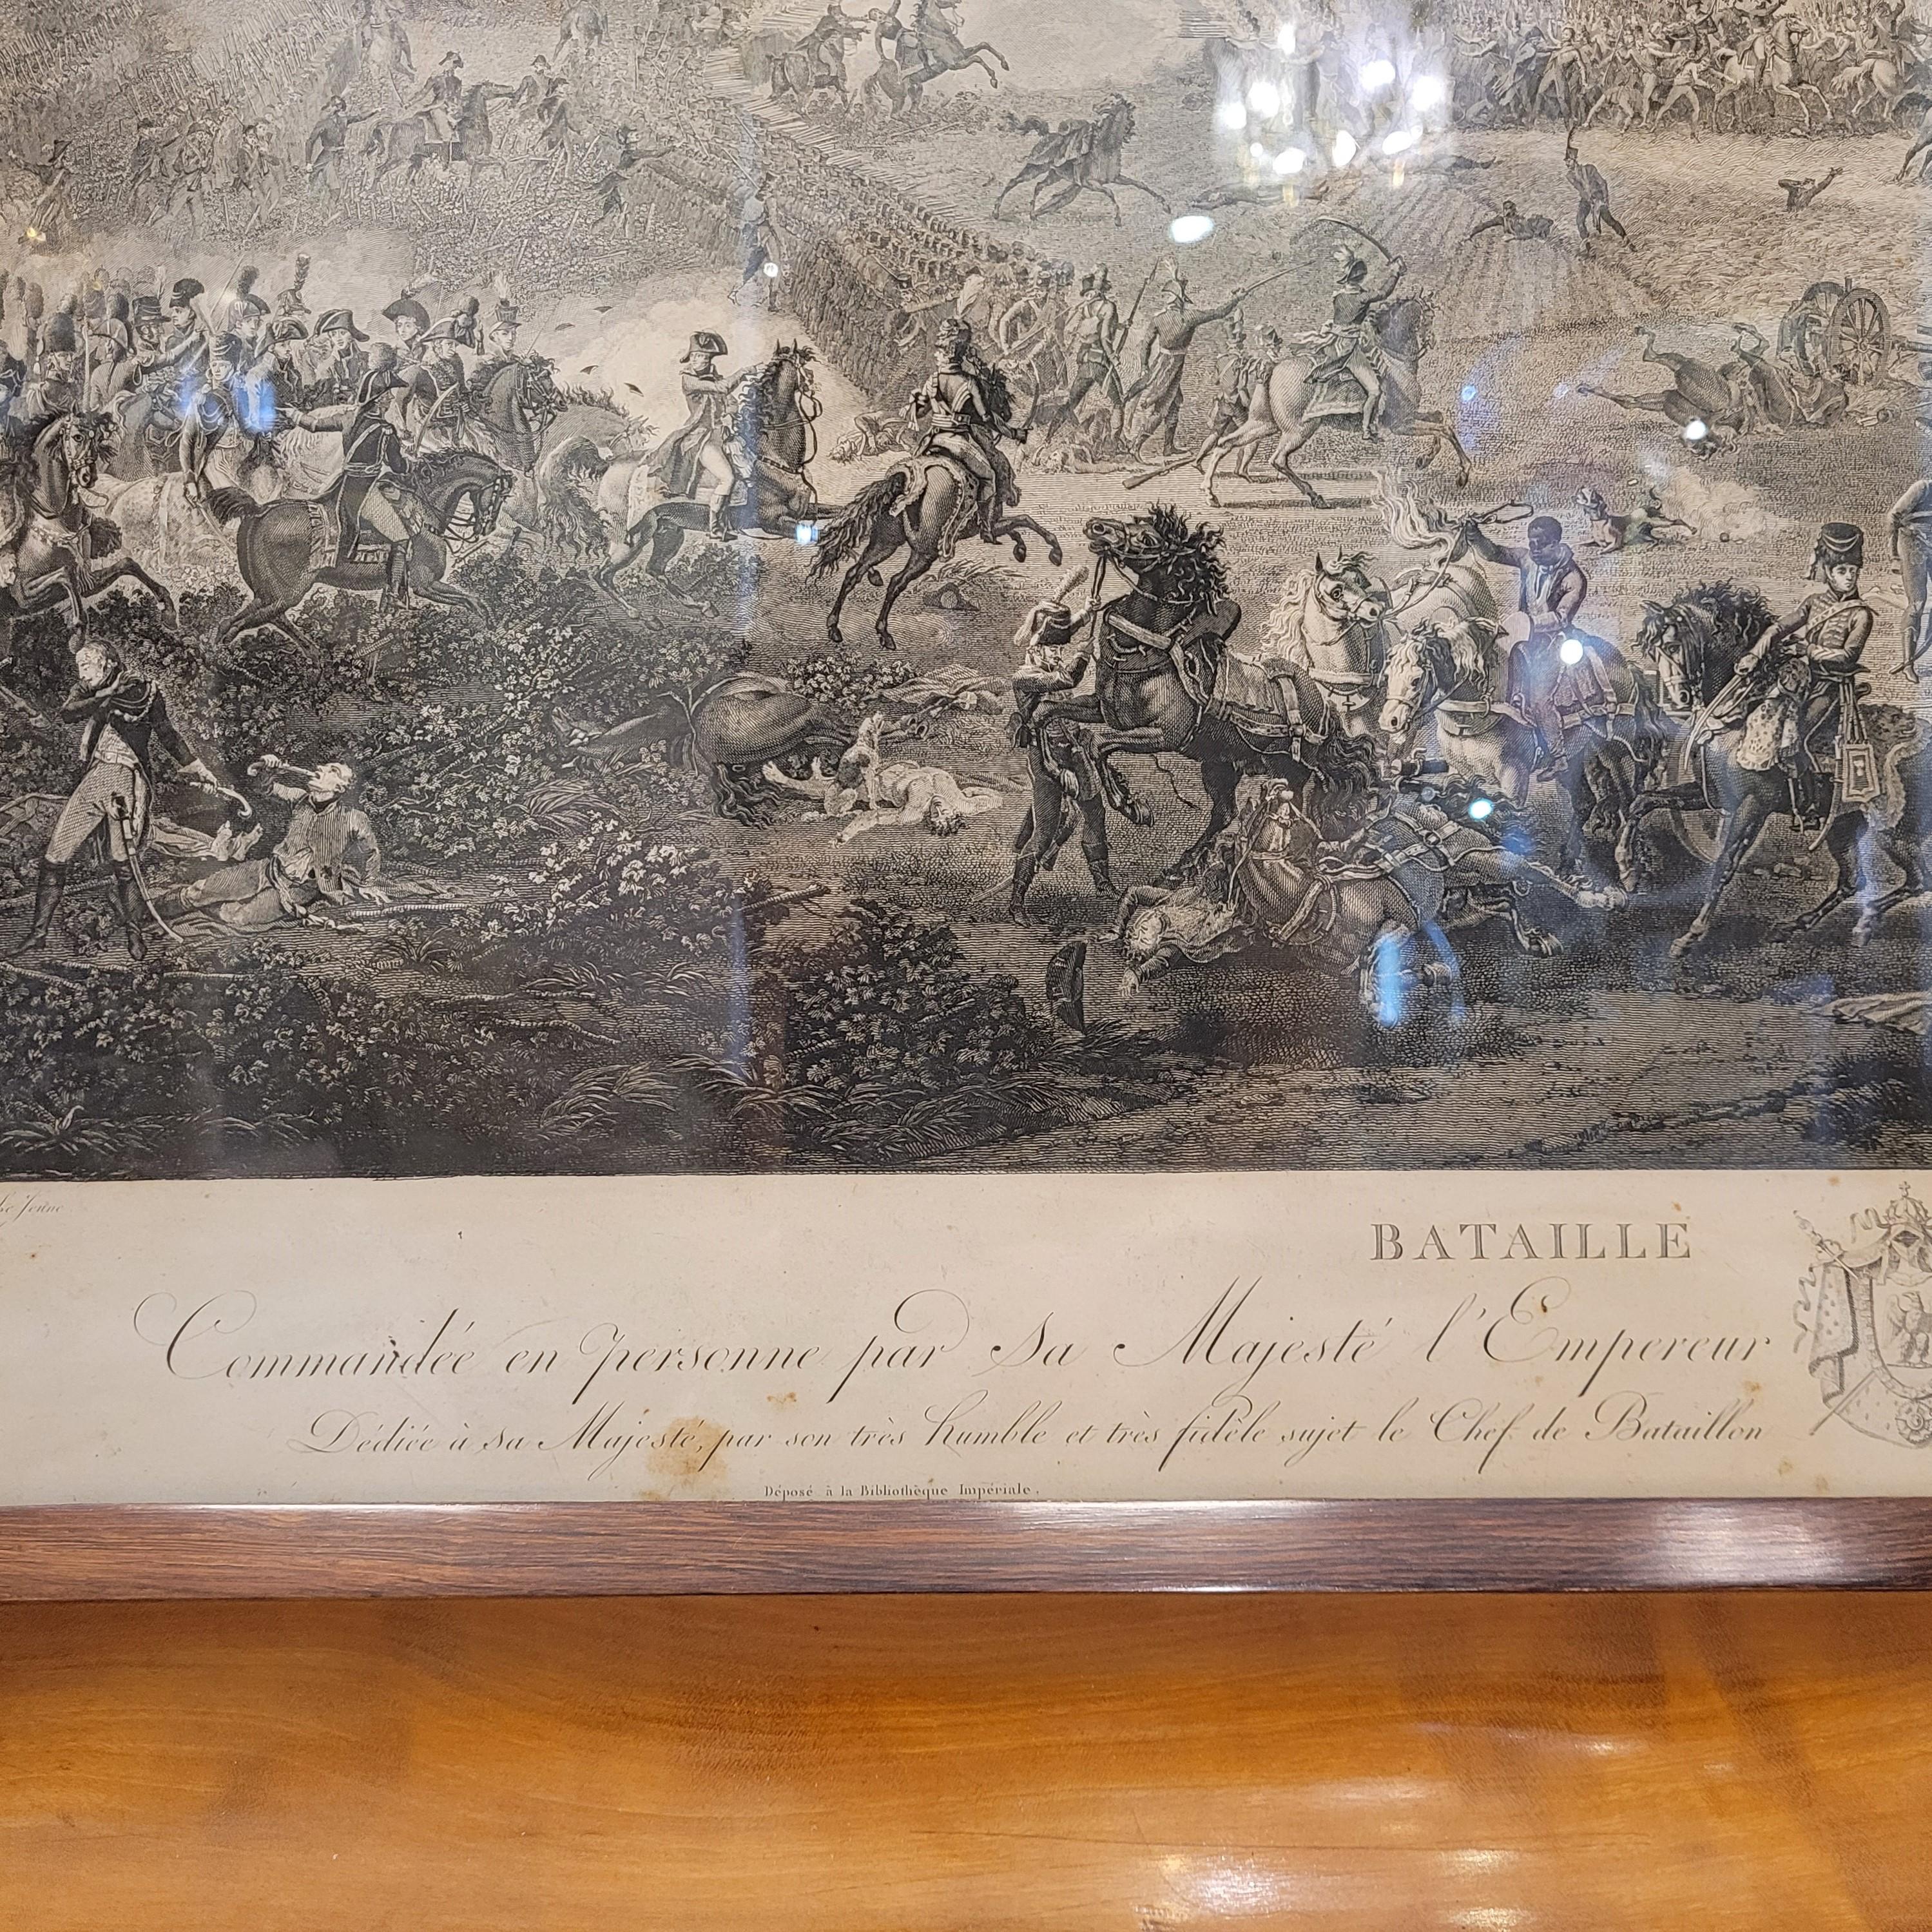 Jeune
BATAILLE
Commandée en personne par sa Majesté l'Empereur
Dédiée à sa Majesté, par son très humble et très fidèle sujet le Chef de Bataillon
Déposé à la Bibliothèque Impériale.